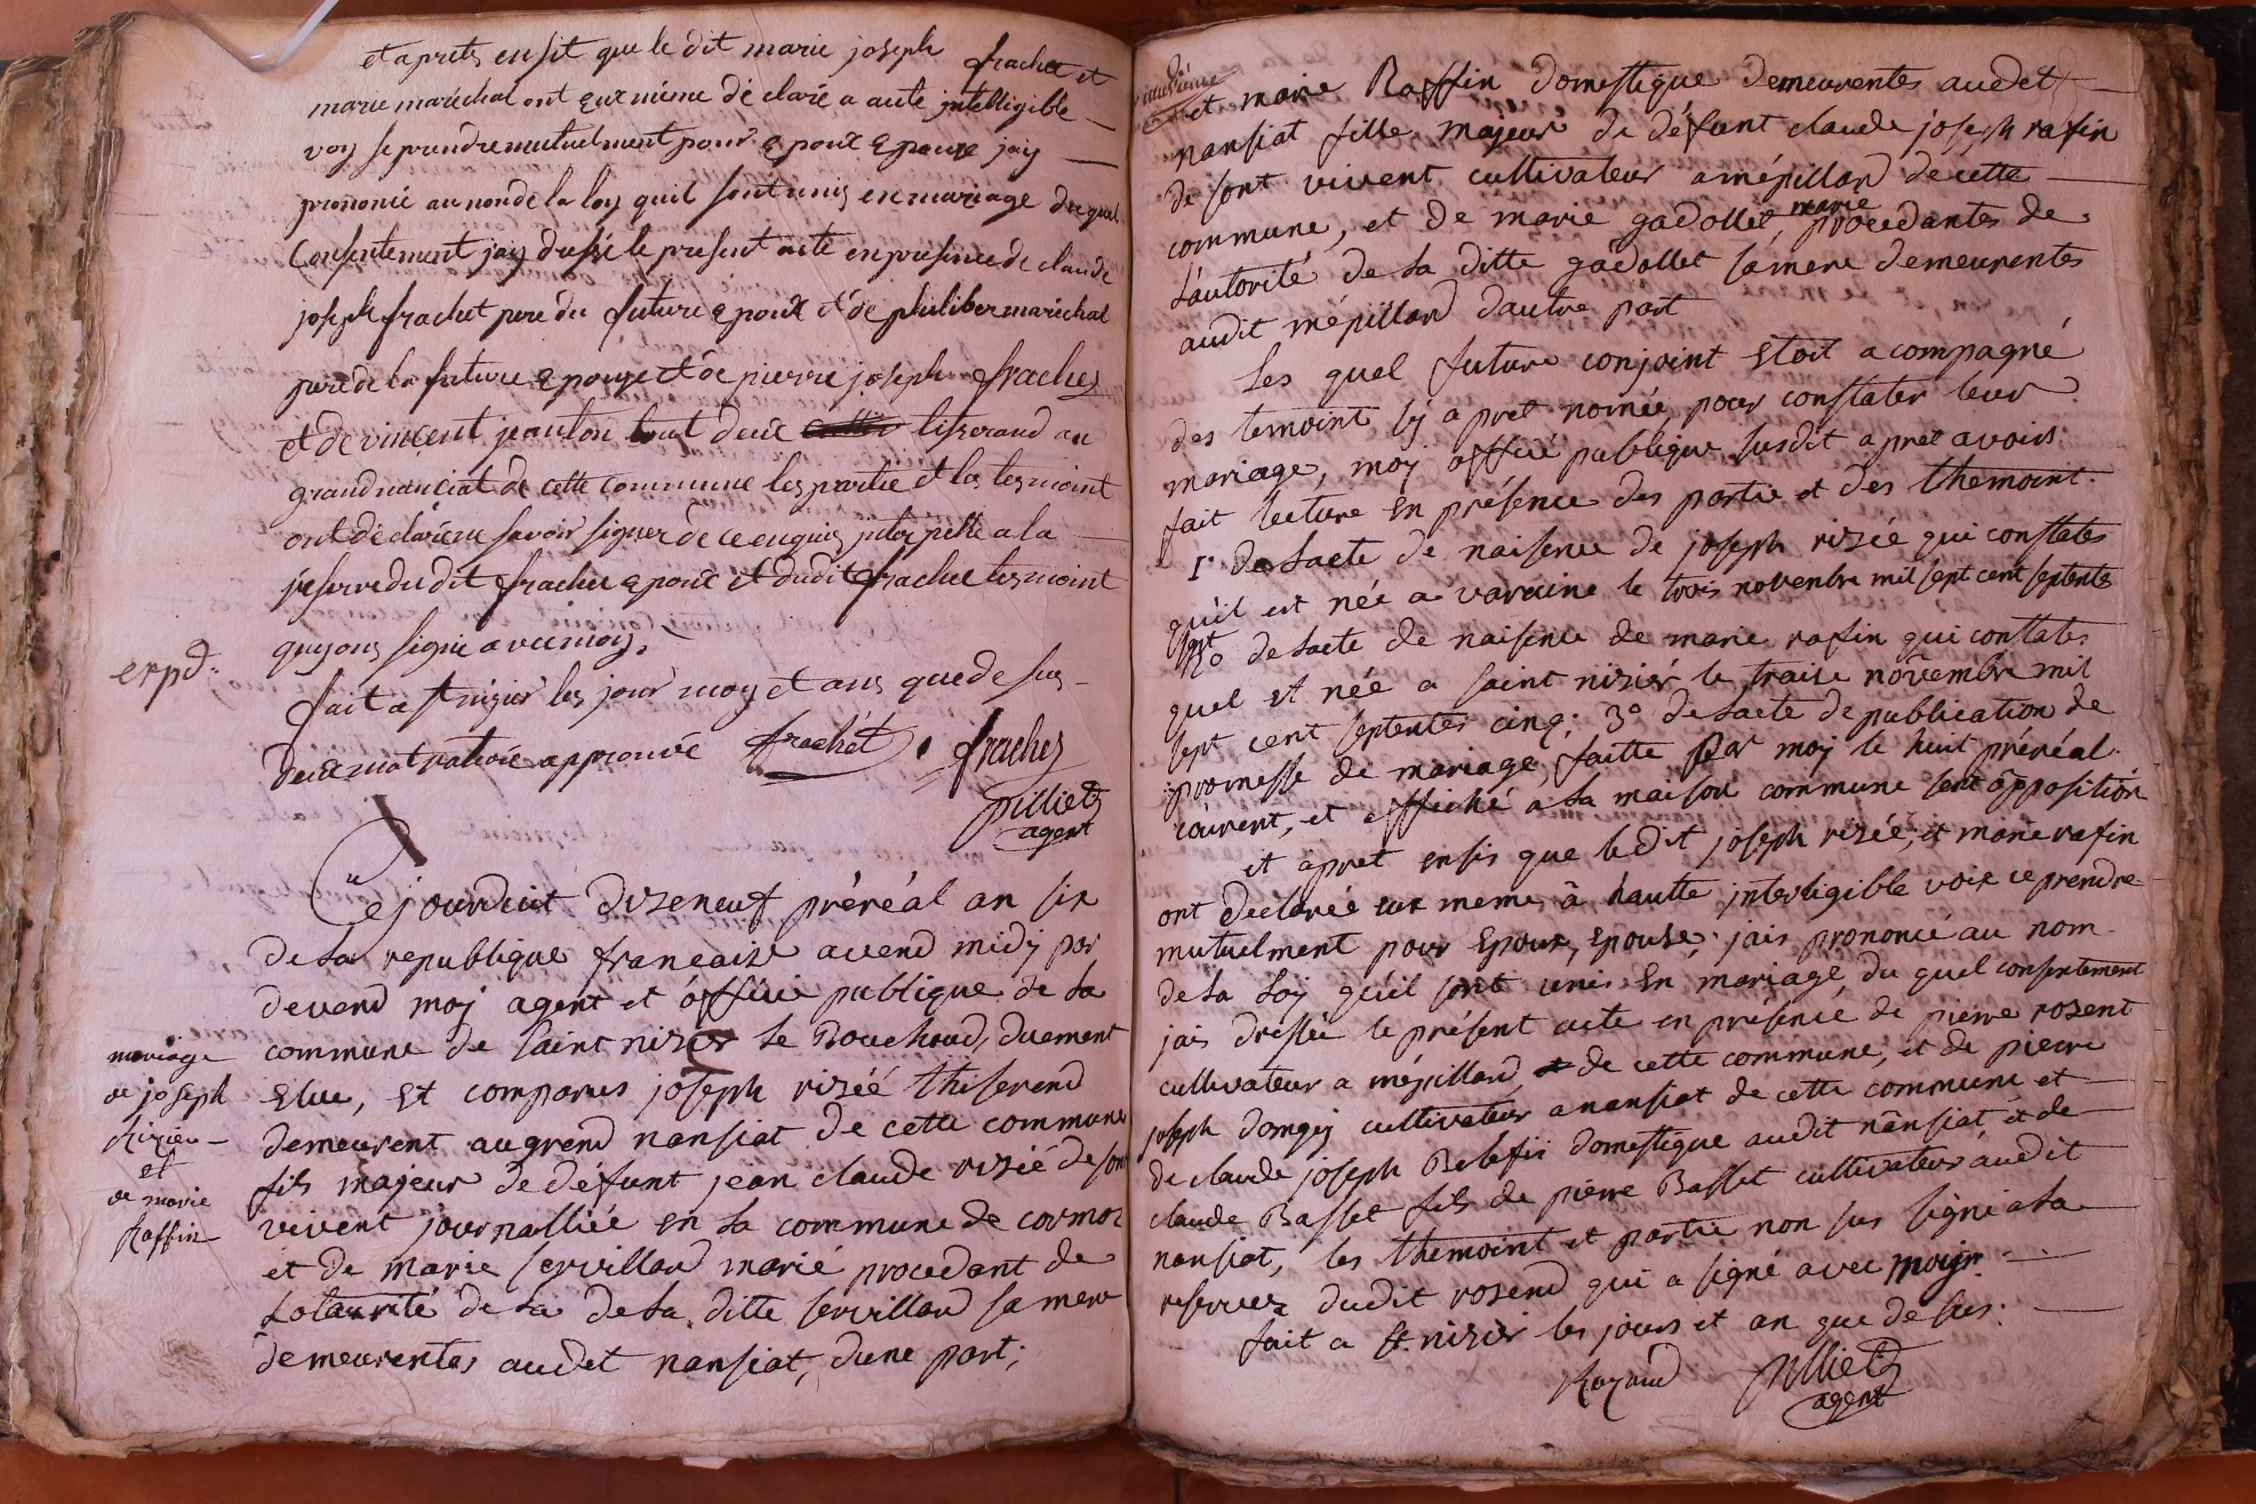 et aprets ensit que le dit marie joseph frachet et
marie maréchal ont eux même déclaré a aute jntelligible
voy se prendre mutuelment pour epoux epouse jay
prononcé au non de la loy quil sont unis en mariage du quel
Consentement jay dressé le present acte en presence de claude
joseph frachet pere du future epoux et de philiber maréchal
pere de la future epouse et de pierre joseph frachet
et de vincent jeanton tout deux tisserand au
grand nanciat de cette commune les partie et les tesmoint
ont déclarée ne savoir signer de ce enquis jnterpellé a la
reserve du dit frachet epoux et dudit frachet tesmoint
quyons signé avec moy.
expd:
fait a st nizier les jour moy et ans que de sus
deux mot ratrée approuvée frachet frachet
pilliet
agent
Cejourduit dizeneuf préréal an six
de la republique francaize avend midy par
devend moy agent et officié publique de la
commune de saint nizier le Bouchoud, duement
mariage
de joseph
Rizieu
et
de marie
Raffin
elue, et comparus joseph rizéé thiserend
demeurent augrend nansiat de cette commune
fils majeur de défunt jean claude rizié de son
vivent journalliée en la commune de cormoz
et de marie servilland marié procedant de
lotaurité de la de la ditte servilland sa mere
demeurentes audet nansiat, dune part;
et marie Raffin domestique demeurentes audet
nansiat fille majeur de défunt claude joseph rafin
de sont vivent cultivateur a mépilland de cette
commune, et de marie gadollet, marie procedantes de
lautorité de la ditte gadollet sa mere demeurentes
audit mépilland dautre part
les quel future conjoint etoit acompagné
des temoint sy apret nomée, pour constater leur
mariage, moy officié publique susdit apret avoirs
fait lecture en présence des partie et des themoint.
1° de lacte de naisence de joseph rizée qui constates
quil est née a varaine le trois novenbre mil sept cent septente
sept
2° de lacte de naisence de marie rafin qui constates
quel et née a saint nizier le traise novembre mil
sept cent septentes cinq; 3° de lacte de publication de
promesse de mariage faitte par moy le huit préréal
courent, et affiché a la maison commune sent opposition
et apret ensis que ledit joseph rizée, et marie rafin
ont declarée eux meme, a hautte jnterligible voix ce prendre
mutuelment pour Epoux, epouse; jais prononcé au nom
de la loy quil sont unis en mariage, du quel consentement
jais dressée le présent acte en présence de pierre rozent
cultivateur a mépilland, de cette commune, et de pierre
joseph domgey cultivateur a nansiat de cette commune et
de claude joseph Belefii domestique audit nansiat, et de
claude Basset fils de pierre Basset cultivateur audit
nansiat, les themoint et partie non sus signé a la
reservez dudit rozend qui a signé avec moy.
fait a st. nizier les jours et an que de sus.
Rozand pilliet
agent